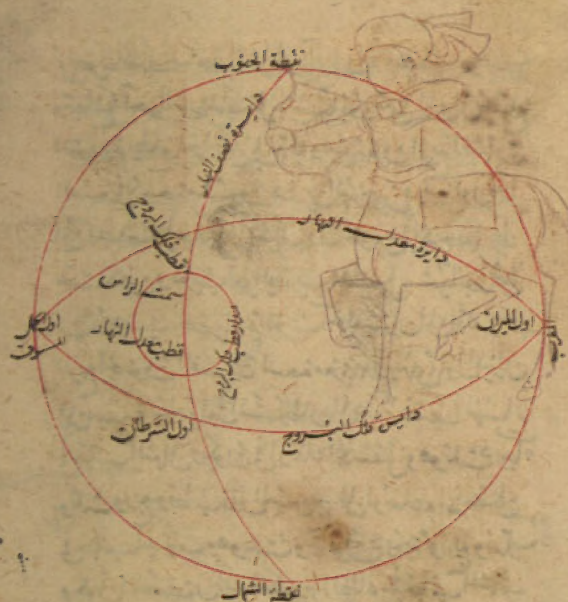 نقطة الجنوب
دايرة نصف النهار
دايرة معدل النهار
قطب فلك البروج
سمت الراس
قطب معدل النهار
مدار قطب فلك البروج
اول الحمل
المشرق
اول الميزان
المغرب
اول السرطان
دايرة فلك البروج
نقطة الشمال